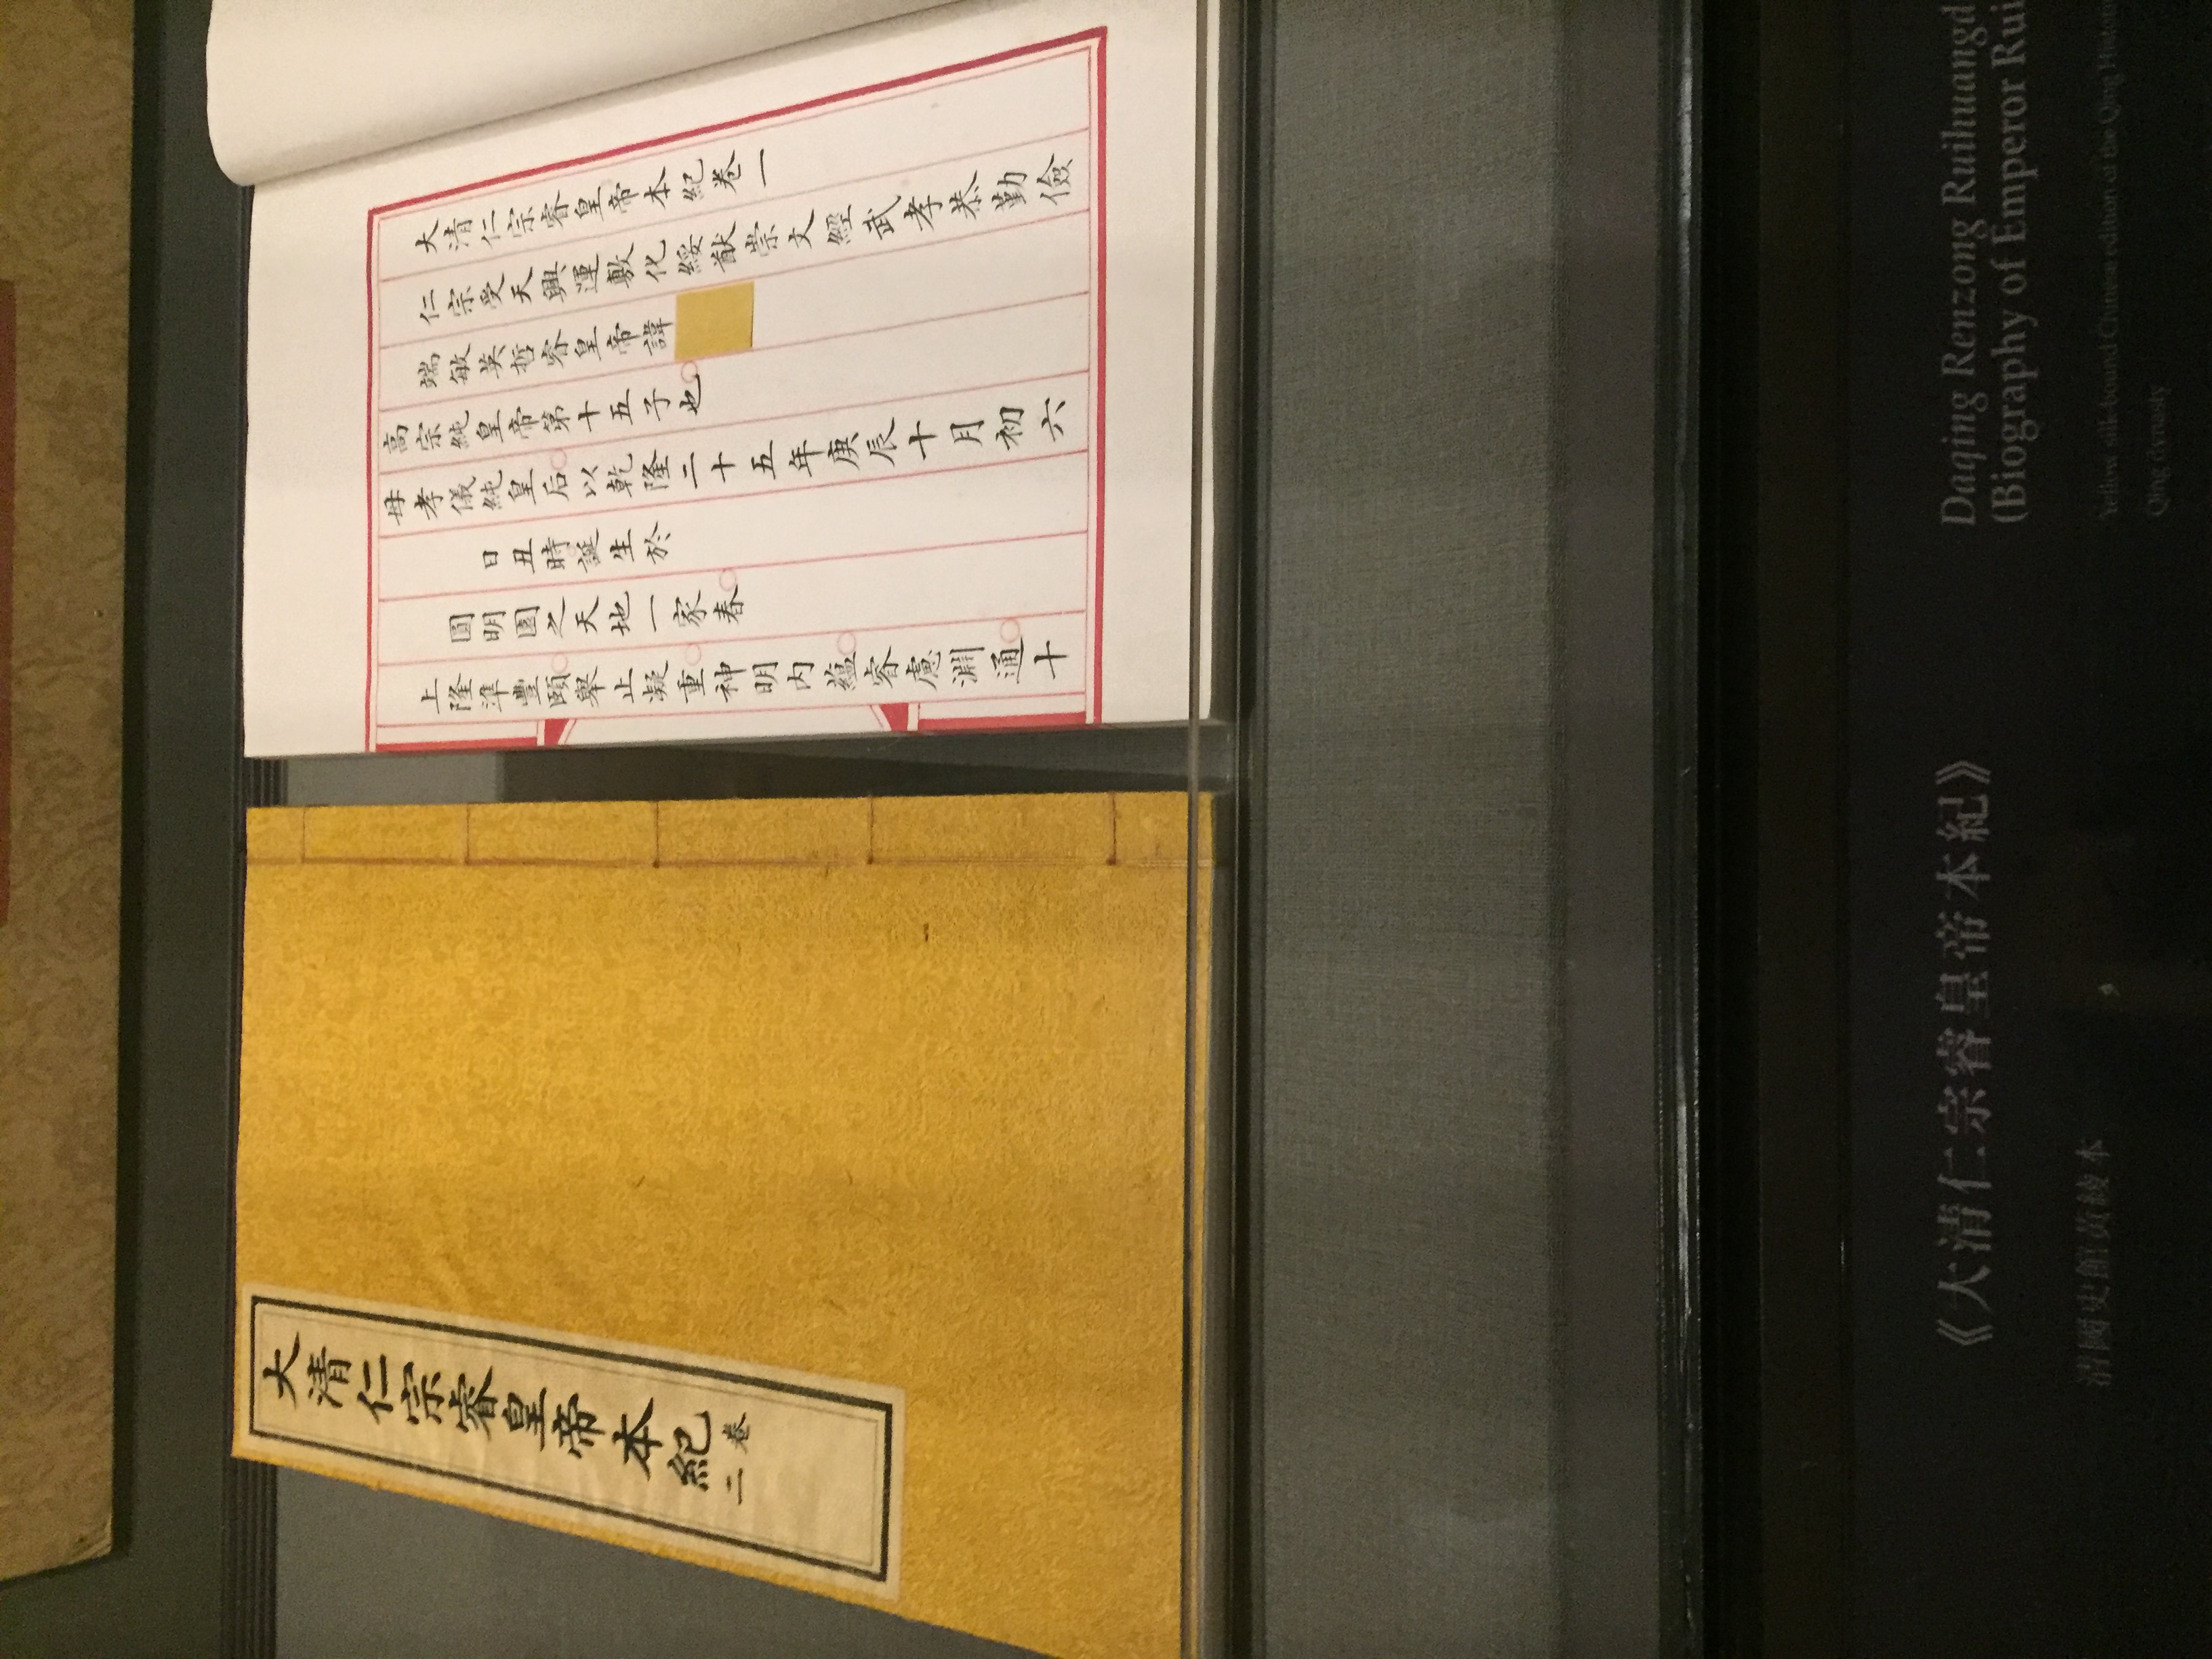 大清仁宗睿皇帝本紀
卷二
大清仁宗睿皇帝本紀卷一
仁宗受天興運敷化綏猷崇文經武孝恭勤儉
端敏英哲睿皇帝諱
高宗純皇帝第十五子也
母孝儀純皇后以乾隆二十五年庚辰十月初六
日丑時誕生於
圓明園之天地一家春
上隆準豐頤舉止凝重神明內蘊睿慮淵通十
《大清仁宗睿皇帝本紀》
清國史館黃綾本
Daqing Renzong Ruihuangd
(Biography of Emperor Rui
Yellow silk-bound Chinese edition of the Qing Histori
Qing dynasty